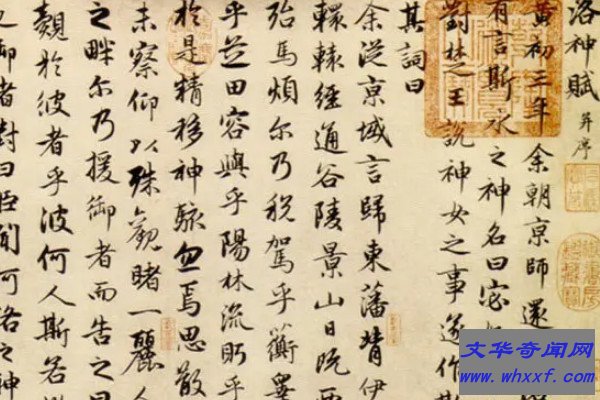 洛神賦 并序
黃初三年余朝京師還
有言斯水之神名曰宓
對楚王說神女之事遂作斯
其詞曰
余從京域言歸東藩背伊
轘轅經通谷陵景山日既西
殆馬煩爾乃稅駕乎蘅皋
乎芝田容與乎陽林流眄乎
於是精移神駭忽焉思散
未察仰以殊觀睹一麗人
之畔爾乃援御者而告之曰
覿於彼者乎彼何人斯若
御者對曰臣聞河洛之神
文华奇闻网
www.whxxf.com